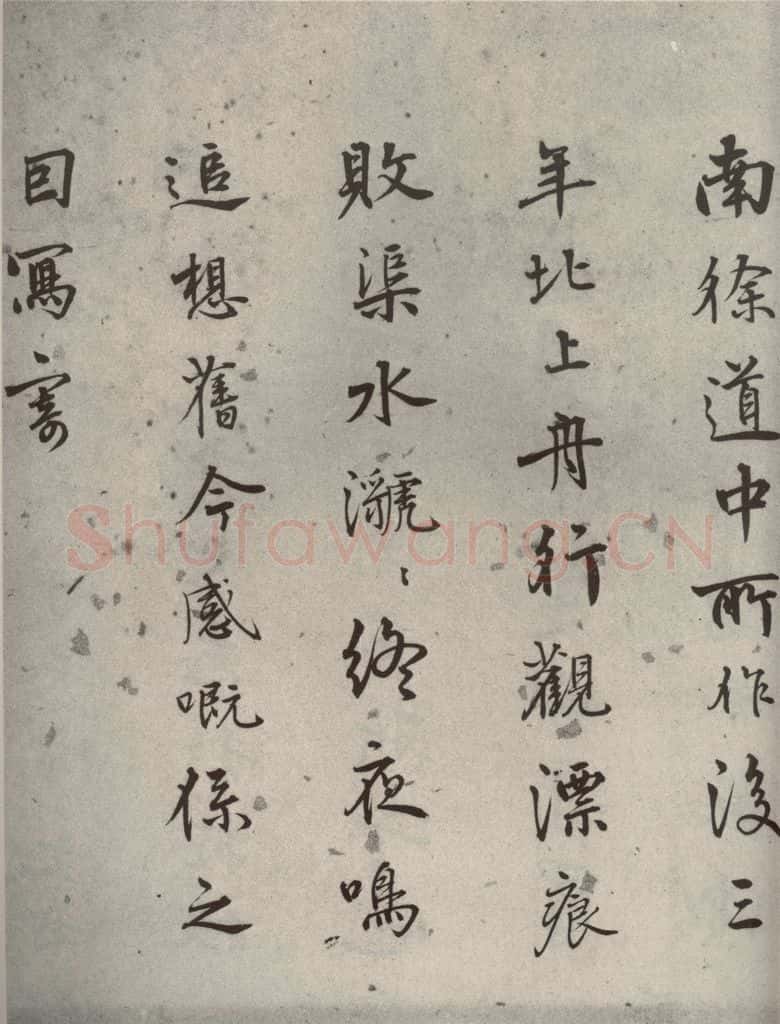 南徐道中所作後三
年北上舟行觀漂痕
敗渠水㶁〻終夜鳴
追想舊今感嘅係之
因寫寄
Shufawang.CN